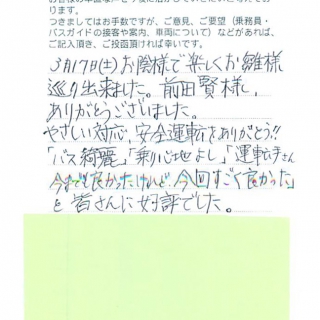 ります。
つきましてはお手数ですが、ご意見、ご要望（乗務員・
バスガイドの接客や案内、車両について）などがあれば、
ご記入頂き、ご投函頂ければ幸いです。
3月17日(土)お陰様で楽しくお雛様
巡り出来ました。前田賢様し
ありがとうございました。
やさしい対応,安全運転をありがとう!!
「バス綺麗」「乗り心地よし」「運転手さん
今までも良かったけれど、今回すごく良かった」
と皆さんに好評でした。